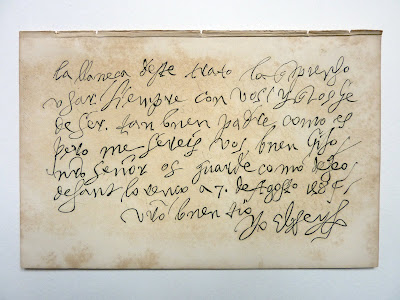 la llaneça deste trato la pienso
usar siempre con vos, y os he
de ser tan buen padre como es
pero me sereis vos buen hijo
nro señor os guarde como deseo
de sant lorenço a 7. de Agosto
vro buen tio
Yo el Rey